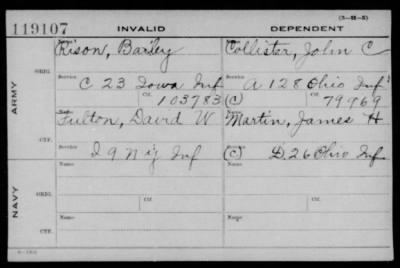 (3-B-5)
119107 INVALID DEPENDENT
Name Rison, Bailey Collister, John C
ARMY ORIG. Service C 23 Iowa Inf Service A 128 Ohio Inf
Ctf. 103783 (C) Ctf. 79769
CTF. Name Fulton, David W Name Martin, James H
Service I 9 N.Y. Inf (C) Service D. 26 Ohio Inf
NAVY ORIG. Name Name
Service Service
CTF. Name Name
Service Service